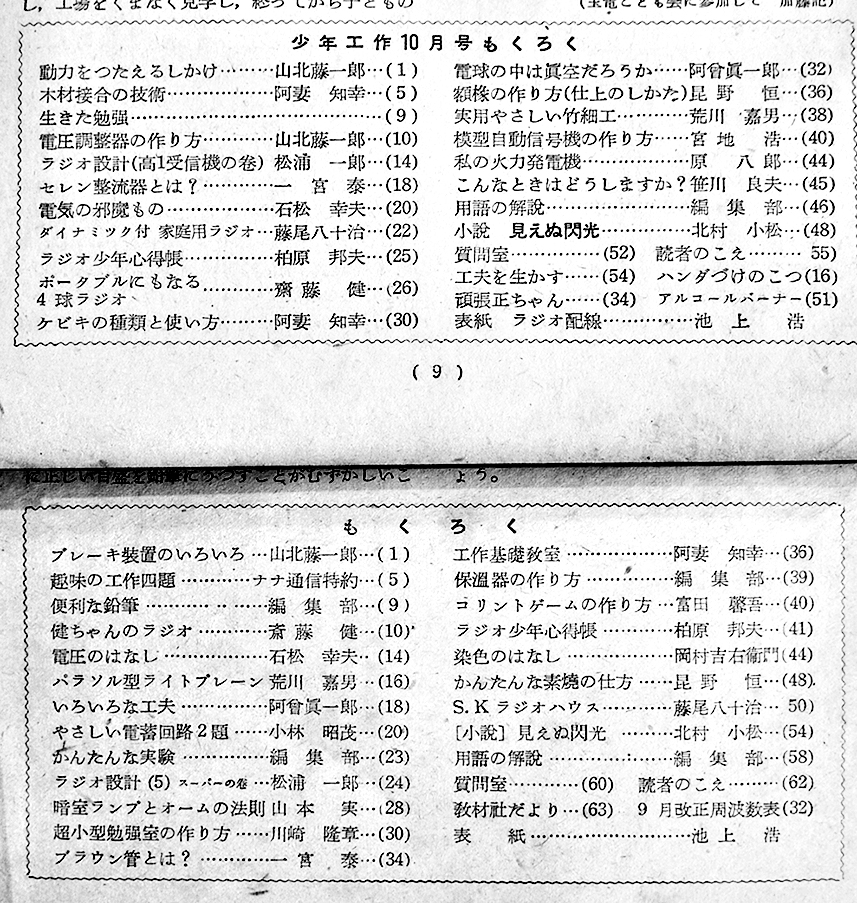 し，工場をくまなく見学し，終ってから子どもの
少年工作10月号もくろく
動力をつたえるしかけ………山北藤一郎…(1)
木材接合の技術……………阿妻 知幸…(5)
生きた勉強……………………………………(9)
電圧調整器の作り方…………山北藤一郎…(10)
ラジオ設計(高1受信機の巻) 松浦 一郎…(14)
セレン整流器とは？…………一宮 泰…(18)
電気の邪魔もの………………石松 幸夫…(20)
ダイナミック付 家庭用ラジオ…藤尾八十治…(22)
ラジオ少年心得帳……………柏原 邦夫…(25)
ポータブルにもなる
4球ラジオ…………齋藤 健…(26)
ケビキの種類と使い方………阿妻 知幸…(30)
電球の中は眞空だろうか……阿曾眞一郎…(32)
額椽の作り方(仕上のしかた)昆野 恒…(36)
実用やさしい竹細工…………荒川 嘉男…(38)
模型自動信号機の作り方……宮地 浩…(40)
私の火力発電機………………原 八郎…(44)
こんなときはどうしますか？笹川 良夫…(45)
用語の解説……………………編集部…(46)
小說 見えぬ閃光……………北村 小松…(48)
質問室……………(52) 読者のこえ………55)
工夫を生かす……(54) ハンダづけのこつ(16)
頑張正ちゃん……(34) アルコールバーナー(51)
表紙 ラジオ配線……………池上 浩
(9)
ょう。
もくろく
ブレーキ装置のいろいろ…山北藤一郎…(1)
趣味の工作四題…………ナナ通信特約…(5)
便利な鉛筆………………編集部…(9)
健ちゃんのラジオ…………斎藤 健…(10)
電圧のはなし………………石松 幸夫…(14)
パラソル型ライトプレーン 荒川 嘉男…(16)
いろいろな工夫……………阿曾眞一郎…(18)
やさしい電蓄回路2題……小林 昭茂…(20)
かんたんな実験……………編集部…(23)
ラジオ設計(5) スーパーの巻…松浦 一郎…(24)
暗室ランプとオームの法則 山本 実…(28)
超小型勉強室の作り方……川崎 隆章…(30)
ブラウン管とは？…………一宮 泰…(34)
工作基礎教室………………阿妻 知幸…(36)
保溫器の作り方……………編集部…(39)
コリントゲームの作り方…富田 馨吾…(40)
ラジオ少年心得帳…………柏原 邦夫…(41)
染色のはなし………………岡村吉右衞門(44)
かんたんな素燒の仕方……昆野 恒…(48)
S.K ラジオハウス…………藤尾八十治…50)
[小説] 見えぬ閃光…………北村 小松…(54)
用語の解說…………………編集部…(58)
質問室…………(60) 読者のこえ………(62)
教材社だより…(63) 9月改正周波数表(32)
表紙……………………池上 浩